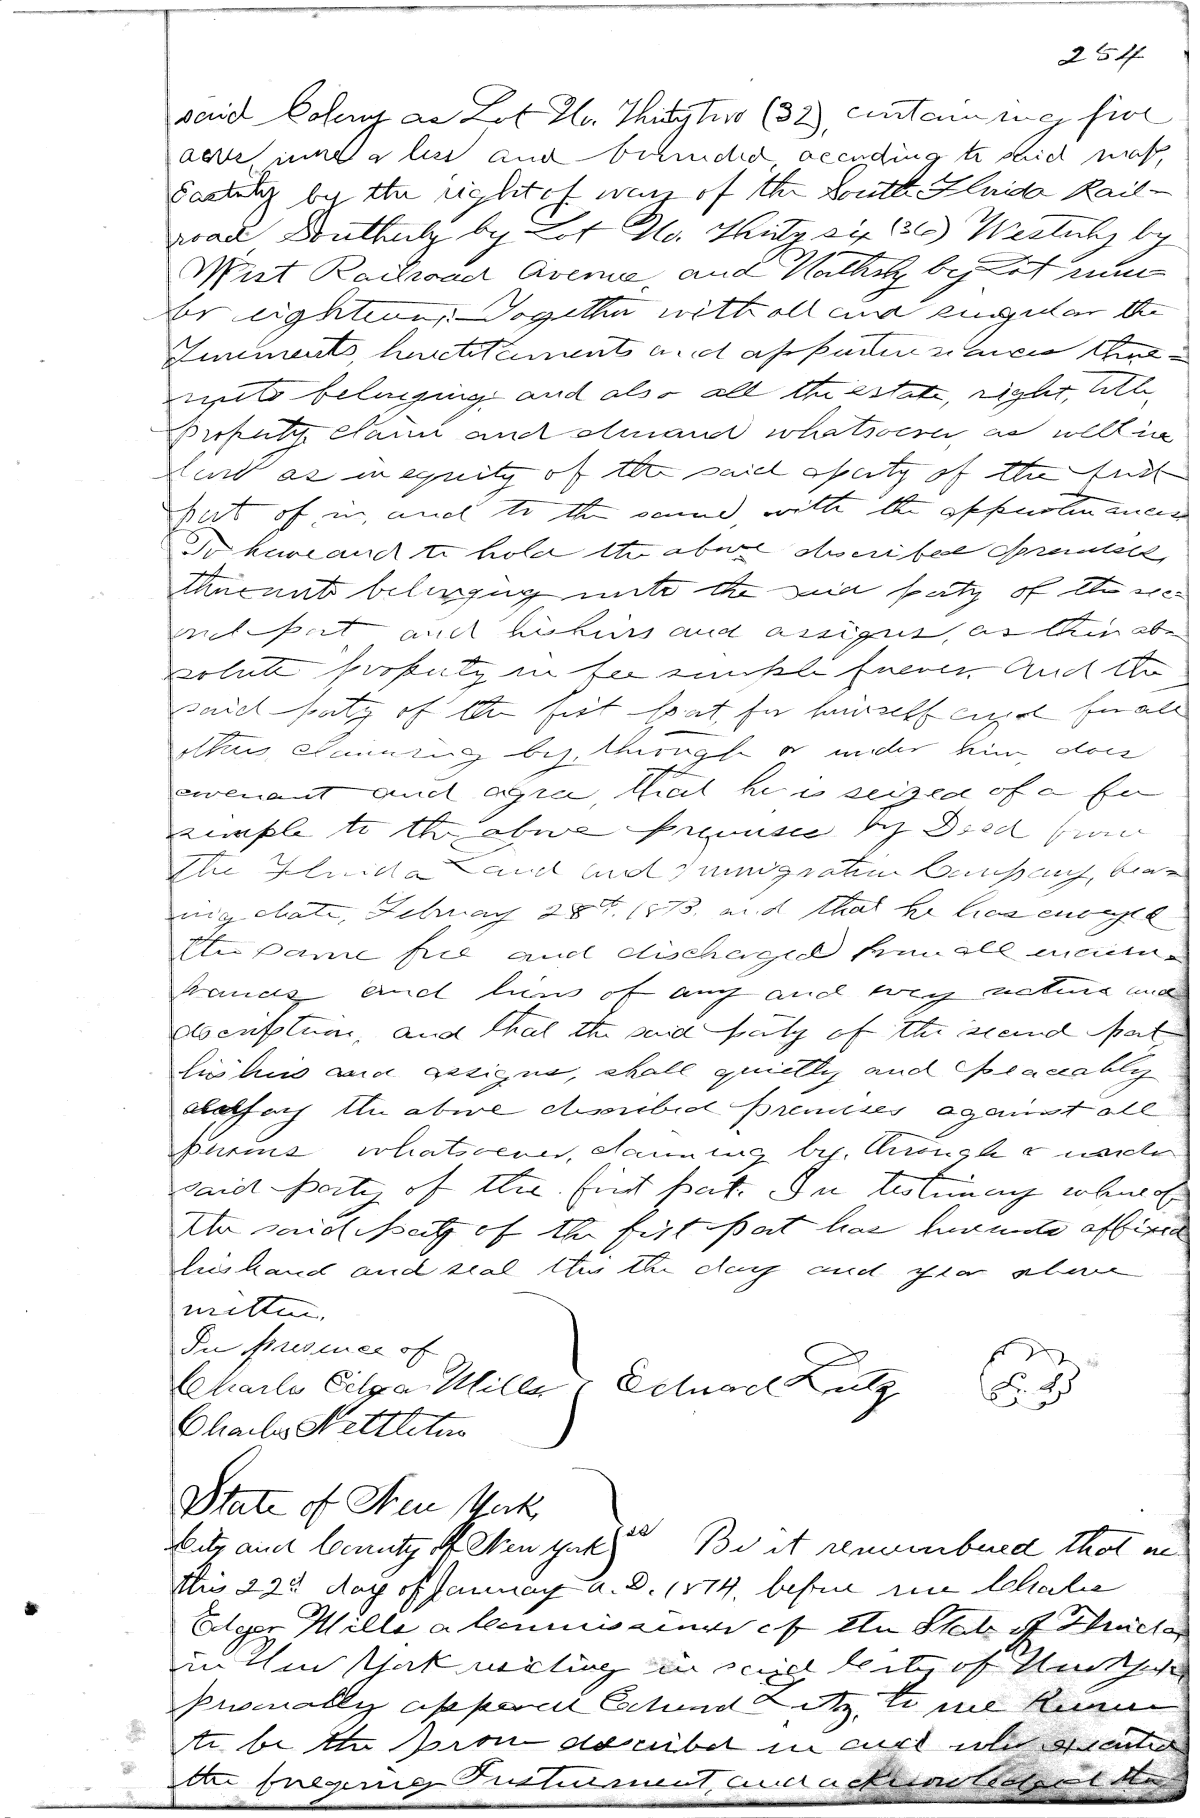 254
said Colony as Lot No. Thirty two (32), containing five
acres, more or less and bounded, according to said map,
Easterly by the right of way of the South Florida Rail-
road Southerly by Lot No. Thirty six (36) Westerly by
West Railroad Avenue, and Northerly by Lot num-
ber eighteen; Together with all and singular the
Tenements, hereditaments and appurtenances there-
unto belonging; and also all the estate, right, title,
property, claim and demand whatsoever, as well in
law as in equity of the said party of the first
part of, in, and to the same, with the appurtenances
To have and to hold the above described premises,
thereunto belonging unto the said party of the sec-
ond part and his heirs and assigns, as their ab-
solute property in fee simple forever. And the
said party of the first part, for himself and for all
others claiming by, through or under him, does
covenant and agree, that he is seized of a fee
simple to the above premises by Deed from
the Florida Land and Immigration Company, bear-
ing date, February 28th. 1873. and that he has
the same free and discharged from all encum-
brances and liens of any and every nature and
description, and that the said party of the second part,
his heirs and assigns, shall quietly and peaceably
the above described premises against all
persons whatsoever, claiming by, through or under
said party of the first part. In testimony whereof
the said party of the first part has hereunto affixed
his hand and seal this the day and year above
written.
In presence of
Charles Edgar Mills } Edward Lutz
Charles Nettleton
State of New York
City and County of New York } ss Be it remembered that on
this 22d day of January A.D. 1874. before me Charles
Edgar Mills a Commissioner of the State of Florida
in New York residing in said City of New York
personally appeared Edward Lutz, to me known
to be the person described in and who executed
the foregoing Instrument, and acknowledged the